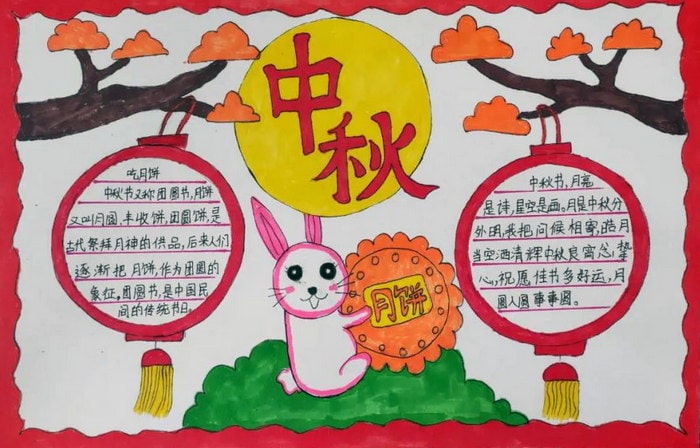 中秋
吃月饼
中秋节又称团圆节,月饼
又叫月团、丰收饼、团圆饼,是
古代祭拜月神的供品,后来人们
逐渐把月饼,作为团圆的
象征,团圆节,是中国民
间的传统节日。
月饼
中秋节,月亮
是诗,星空是画。月是中秋分
外明,我把问候相寄,皓月
当空洒清辉中秋良宵念,挚
心,祝愿佳节多好运,月
圆人圆事事圆。